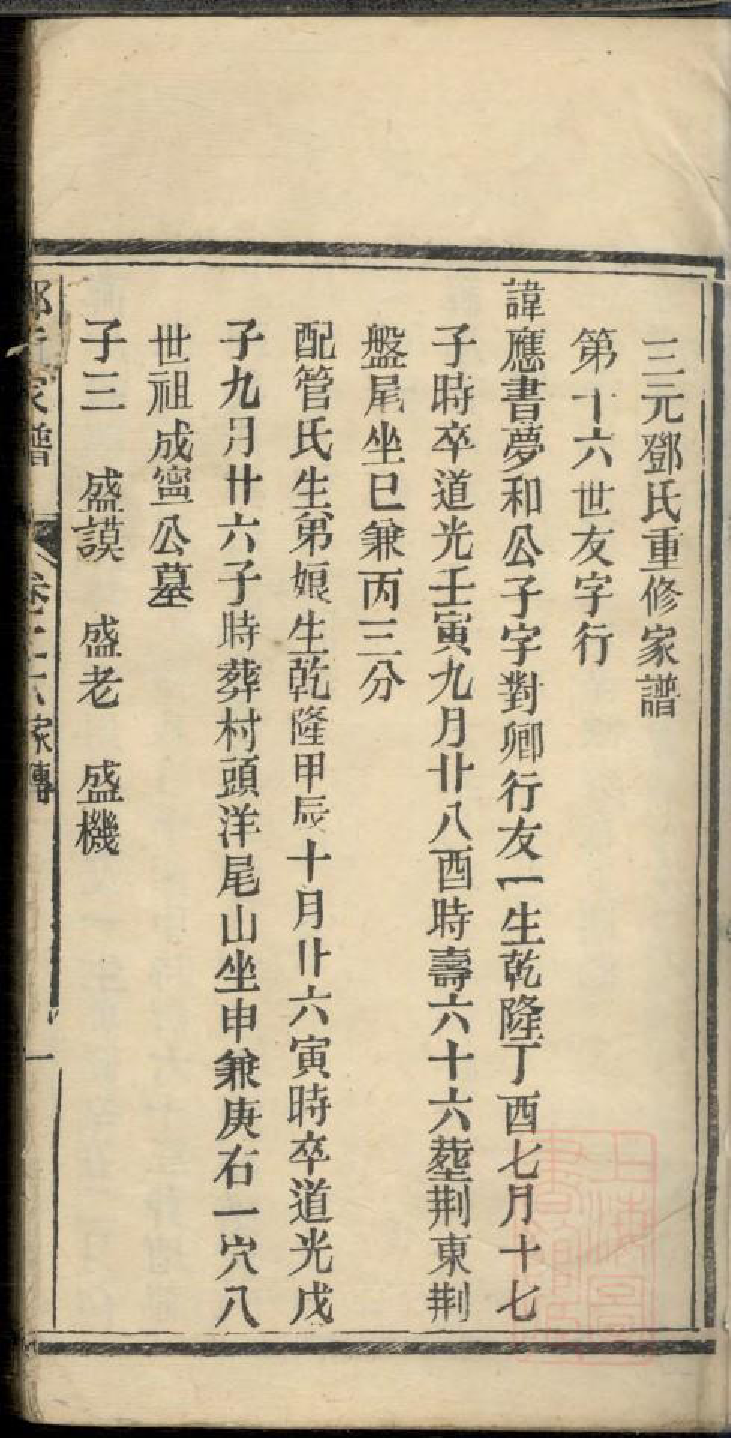 三元鄧氏重修家譜
第十六世友字行
諱應書夢和公子字對卿行友一生乾隆丁酉七月十七
子時卒道光壬寅九月廿八酉時壽六十六塟荆東荆
盤尾坐巳兼丙三分
配管氏生弟娘生乾隆甲辰十月廿六寅時卒道光戊
子九月廿六子時葬村頭洋尾山坐申兼庚右一穴八
世祖成寧公墓
子三　盛謨　盛老　盛機
家譜　家傳　一
上海圖書館藏